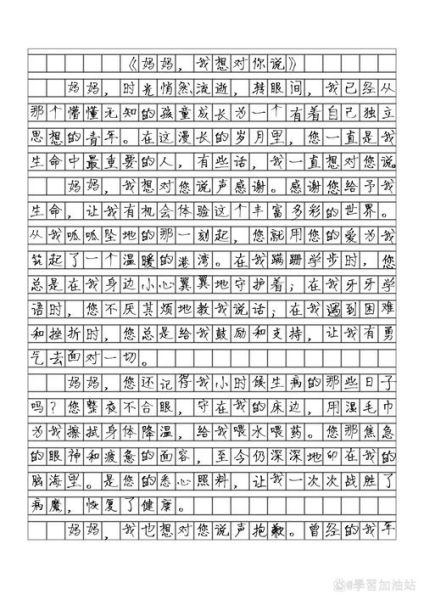 《妈妈，我想对你说》
妈妈，时光悄然流逝，转眼间，我已经从
那个懵懂无知的孩童成长为一个有着自己独立
思想的青年。在这漫长的岁月里，您一直是我
生命中最重要的人，有些话，我一直想对您说
妈妈，我想对您说声感谢。感谢您给予我
生命，让我有机会体验这个丰富多彩的世界。
从我呱呱坠地的那一刻起，您就用您的爱为我
筑起了一个温暖的港湾。在我蹒跚学步时，您
总是在我身边小心翼翼地守护着；在我牙牙学
语时，您不厌其烦地教我说话；在我遇到困难
和挫折时，您总是给我鼓励和支持，让我有勇
气去面对一切。
妈妈，您还记得我小时候生病的那些日子
吗？您整夜不合眼，守在我的床边，用湿毛巾
为我擦拭身体降温，给我喂水喂药。您那焦急
的眼神和疲惫的面容，至今仍深深地印在我的
脑海里。是您的悉心照料，让我一次次战胜了
病魔，恢复了健康。
妈妈，我也想对您说声抱歉。曾经的我年
@學習加油站